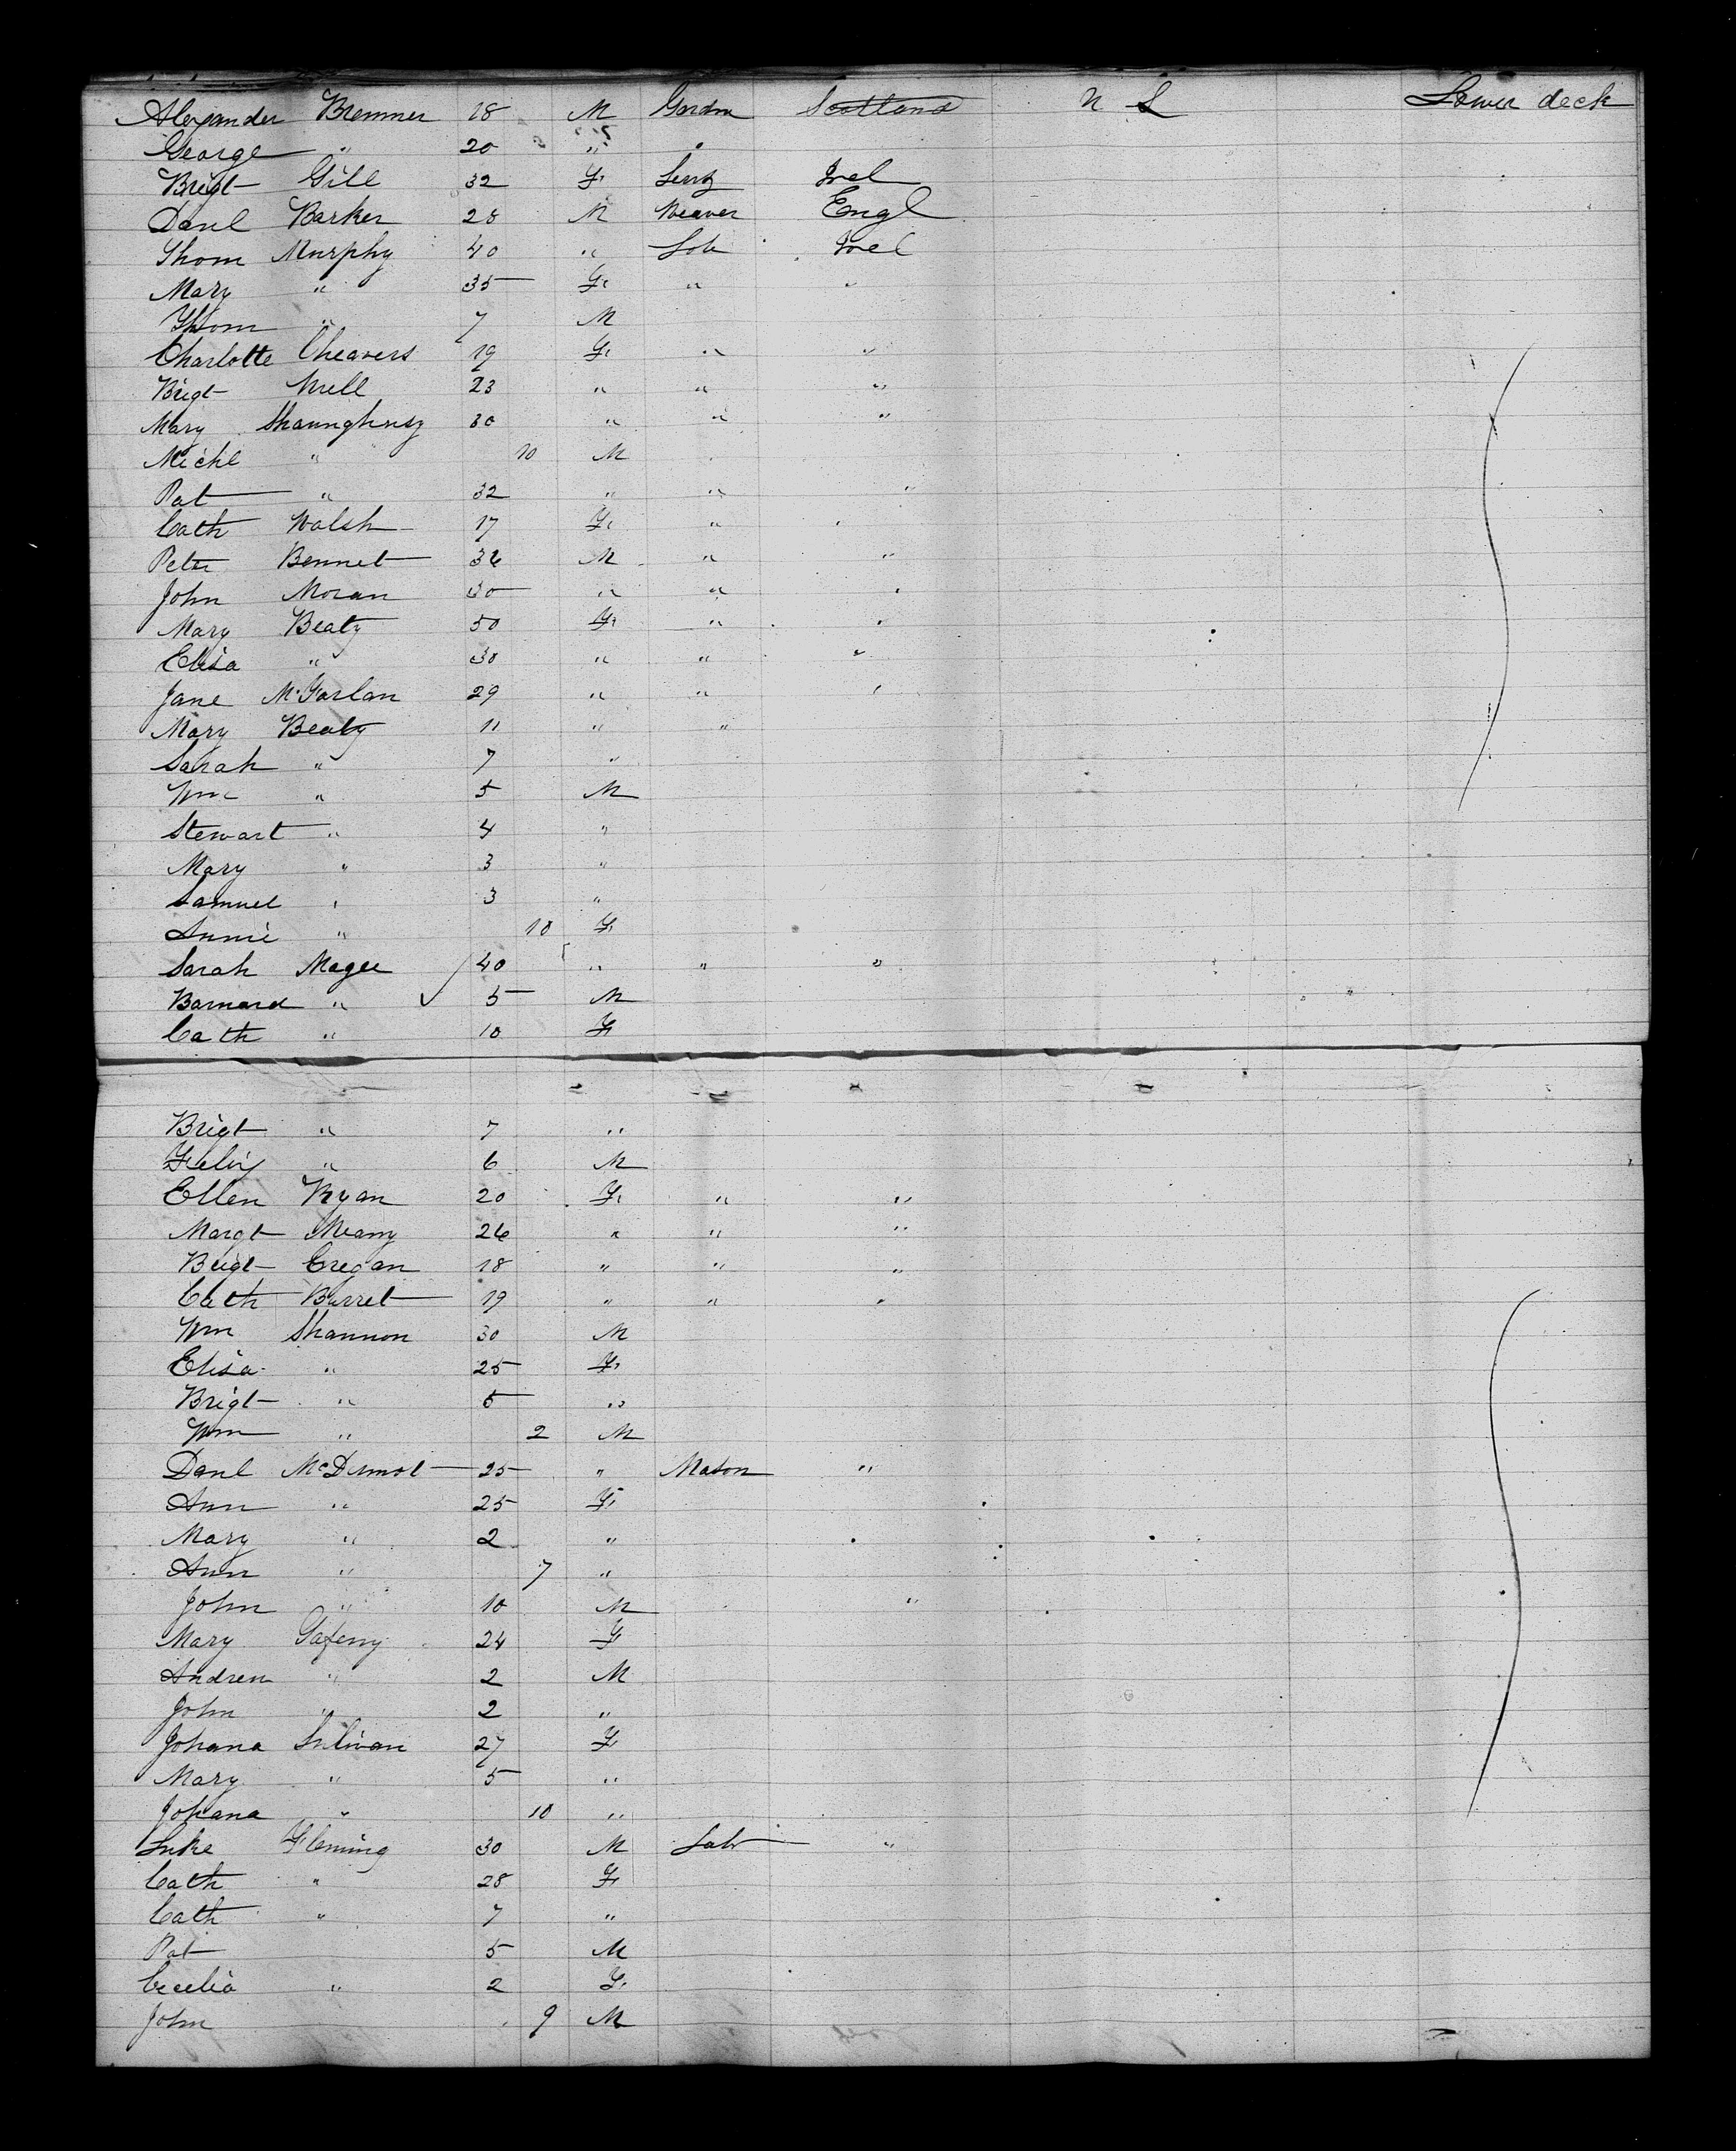 Alexander Bremner 18 M Gordn Scotland U S Lower deck
George " 20 " "
Brigt Gill 32 F Servt Irel
Danl Barker 28 M Weaver Engl
Thom Murphy 40 " Lab Irel
Mary " 35 F " "
Thom " 7 M
Charlotte Cheavers 19 F " "
Brigt 23 " " "
Mary Shaunghnsy 30 " " "
Michl " 10 M
Pat " 32 " " "
Cath Walsh 17 F " "
Peter Bennet 36 M " "
John Moran 30 " " "
Mary Beaty 50 F " "
Elisa " 30 " " "
Jane McFarlan 29 " " "
Mary Beaty 11 " "
Sarah " 7 "
Wm " 5 M
Stewart " 4 "
Mary " 3 "
Samuel " 3 "
Annie " 10 F
Sarah Magee 40 " " "
Barnard " 5 M
Cath " 10 F
Brigt " 7 "
" 6 M
Ellen Ryan 20 F " "
Margt Meany 26 " " "
Brigt Cregan 18 " " "
Cath Burret 19 " " "
Wm Shannon 30 M
Elisa " 25 F
Brigt " 5 "
Wm " 2 M
Danl McDrmot 25 " Mason "
Ann " 25 F
Mary " 2 "
Ann " 7 "
John " 10 M "
Mary Gafeny 24 F
Andrew " 2 M
John " 2 "
Johana Sulivan 27 F
Mary " 5 "
Johana " 10 "
Luke Fleming 30 M Labr "
Cath " 28 F
Cath " 7 "
Pat 5 M
Cecelia " 2 F
John 9 M